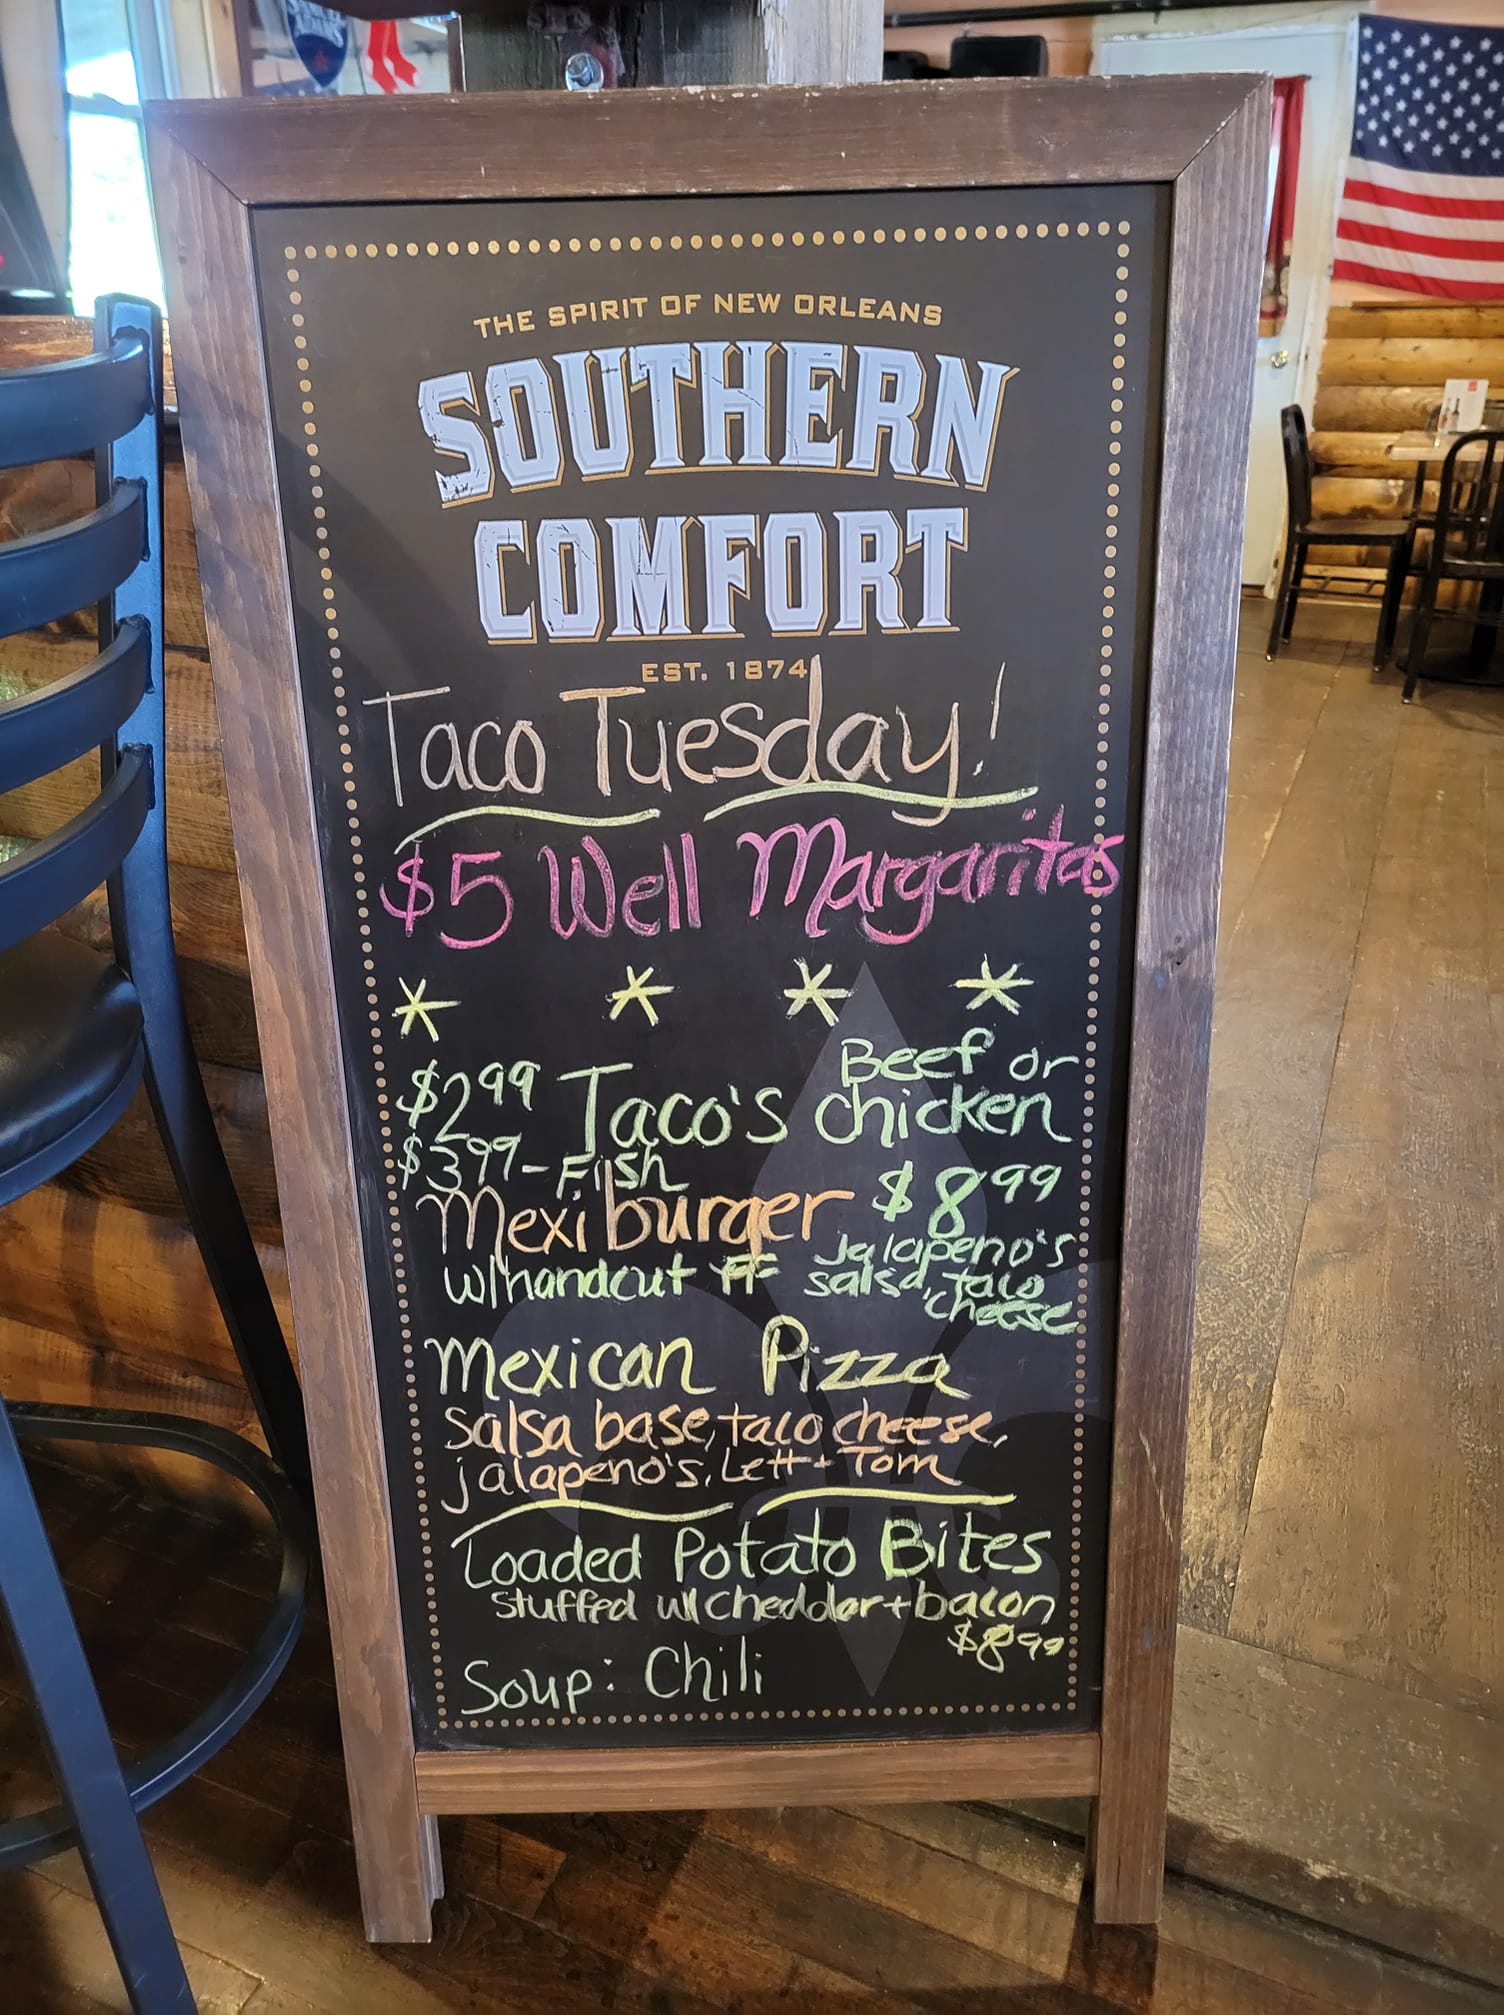 THE SPIRIT OF NEW ORLEANS
SOUTHERN
COMFORT
EST. 1874
Taco Tuesday!
$5 Well Margaritas
* * * *
$2.99 Taco's Beef or
chicken
$3.99 - Fish
Mexi burger $8.99
w/handcut FF Jalapeno's
salsa, taco
cheese
Mexican Pizza
salsa base, taco cheese,
jalapeno's, Lett + Tom
Loaded Potato Bites
stuffed w/ cheddar + bacon
$8.99
Soup: Chili